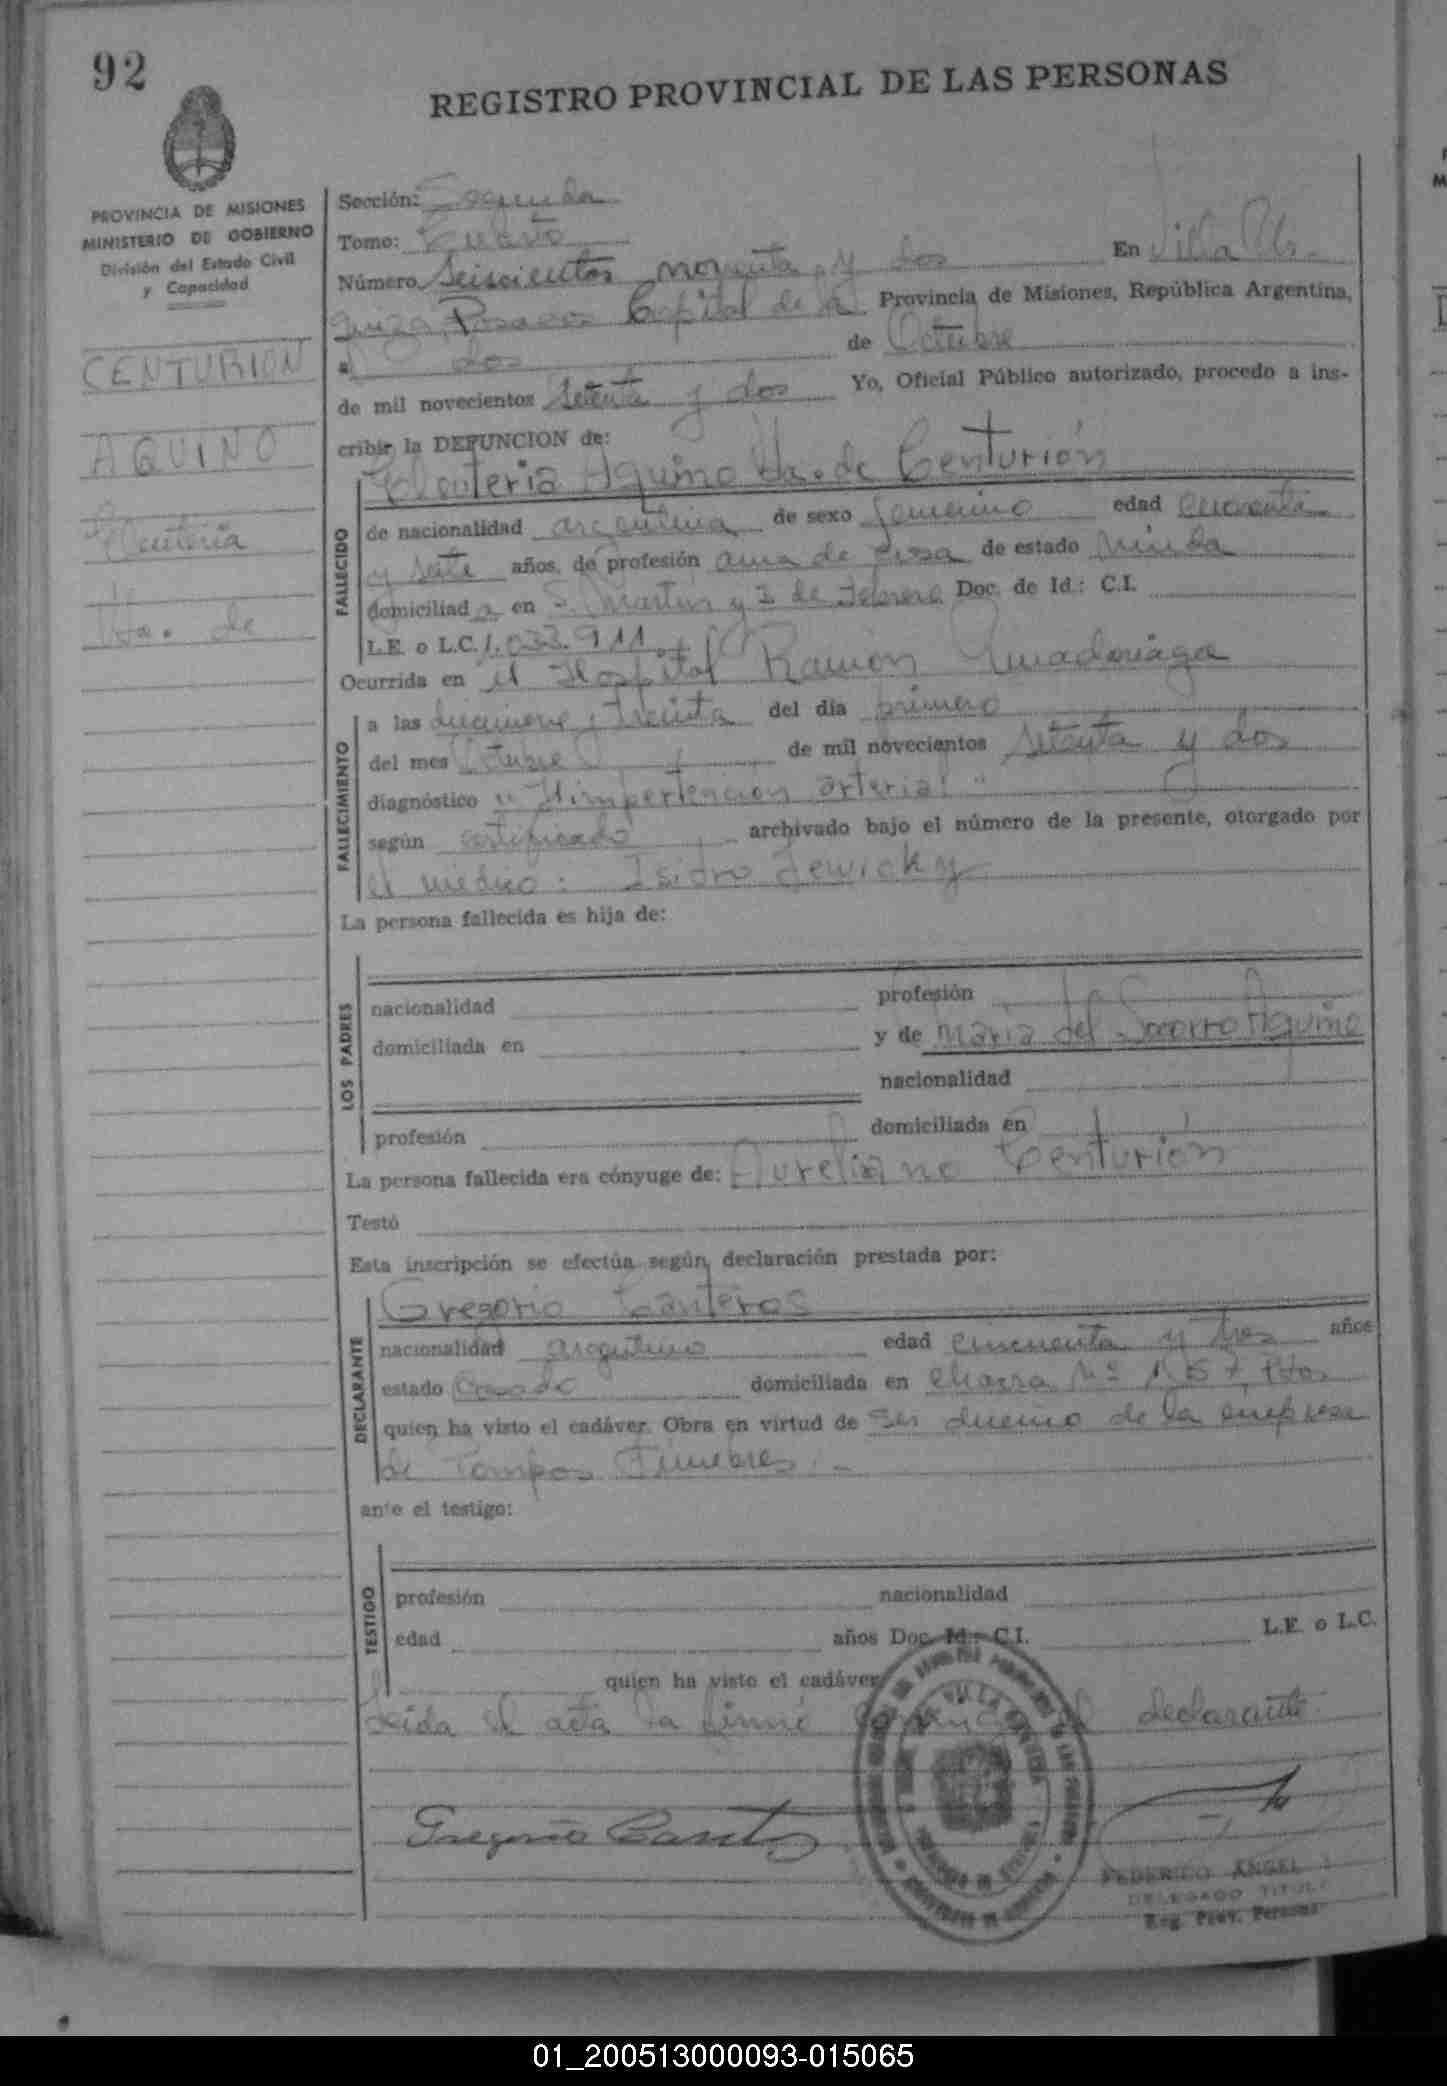 92
REGISTRO PROVINCIAL DE LAS PERSONAS
PROVINCIA DE MISIONES
MINISTERIO DE GOBIERNO
División del Estado Civil
y Capacidad
CENTURION
AQUINO
Eleuteria
Vda. de
Sección: Segunda
Tomo: Cuarto
Número Seiscientos noventa y dos En Villa Ur-
quiza Posadas Capital de la Provincia de Misiones, República Argentina,
a dos de Octubre
de mil novecientos setenta y dos Yo, Oficial Público autorizado, procedo a ins-
cribir la DEFUNCION de:
Eleuteria Aquino Vda. de Centurión
FALLECIDO
de nacionalidad argentina de sexo femenino edad cuarenta
y siete años, de profesión ama de casa de estado viuda
domiciliada en S. Martín y 3 de Febrero Doc. de Id.: C.I.
L.E. o L.C. 1.033.911
Ocurrida en el Hospital Ramón Madariaga
FALLECIMIENTO
a las diecinueve y treinta del día primero
del mes Octubre de mil novecientos setenta y dos
diagnóstico "Himpertencion arterial"
según certificado archivado bajo el número de la presente, otorgado por
el médico: Isidro Lewicky
La persona fallecida es hija de:
LOS PADRES
nacionalidad profesión
domiciliada en y de María del Socorro Aquino
nacionalidad
profesión domiciliada en
La persona fallecida era cónyuge de: Aureliano Centurión
Testó
Esta inscripción se efectúa según declaración prestada por:
DECLARANTE
Gregorio Canteros
nacionalidad argentino edad cincuenta y tres años
estado Casado domiciliada en chacra Nº 157 Pdas
quien ha visto el cadáver. Obra en virtud de ser dueño de la empresa
de Pompas Fúnebres.-
ante el testigo:
TESTIGO
profesión nacionalidad
edad años Doc. Id.: C.I. L.E. o L.C.
quien ha visto el cadáver
Leida el acta la firmó el declarante
Gregorio
FEDERICO ANGEL
DELEGADO TITUL
Reg. Prov. Persona
01_200513000093-015065